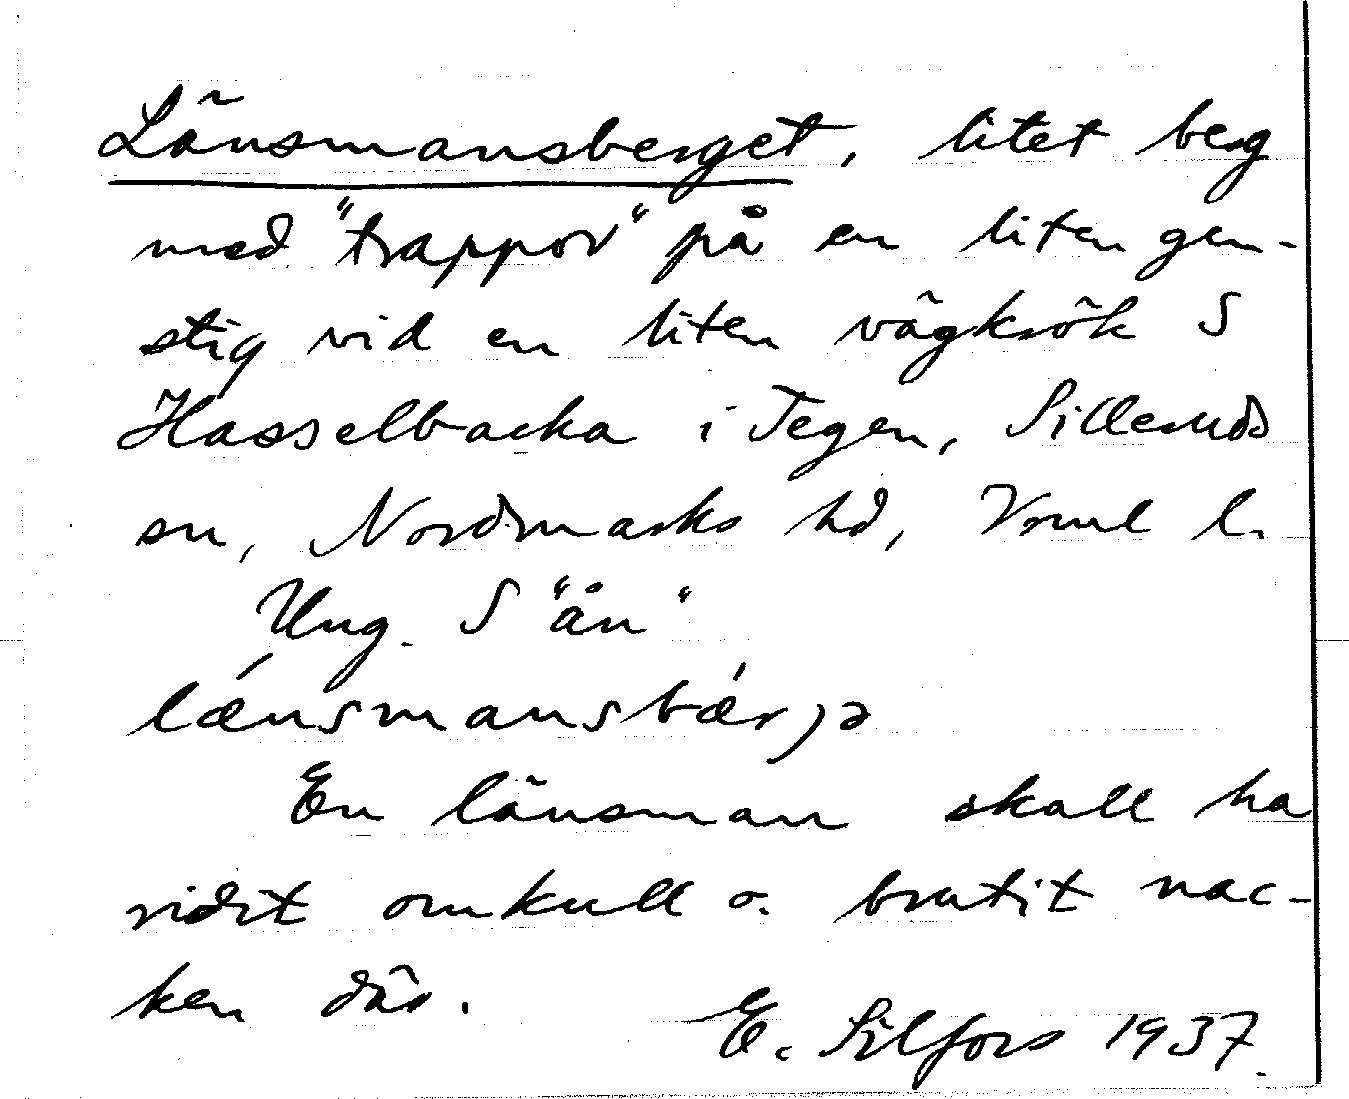 Länsmansberget, litet berg
med "trappor" på en liten gen-
stig vid en liten vägkrök S
Hasselbacka i Tegen, Silleruds
sn, Nordmarks hd, Vrml l.
Ung. S "ån"
lǽnsmansbǽrjə
En länsman skall ha
ridit omkull o. brutit nac-
ken där.
E. Silfors 1937.